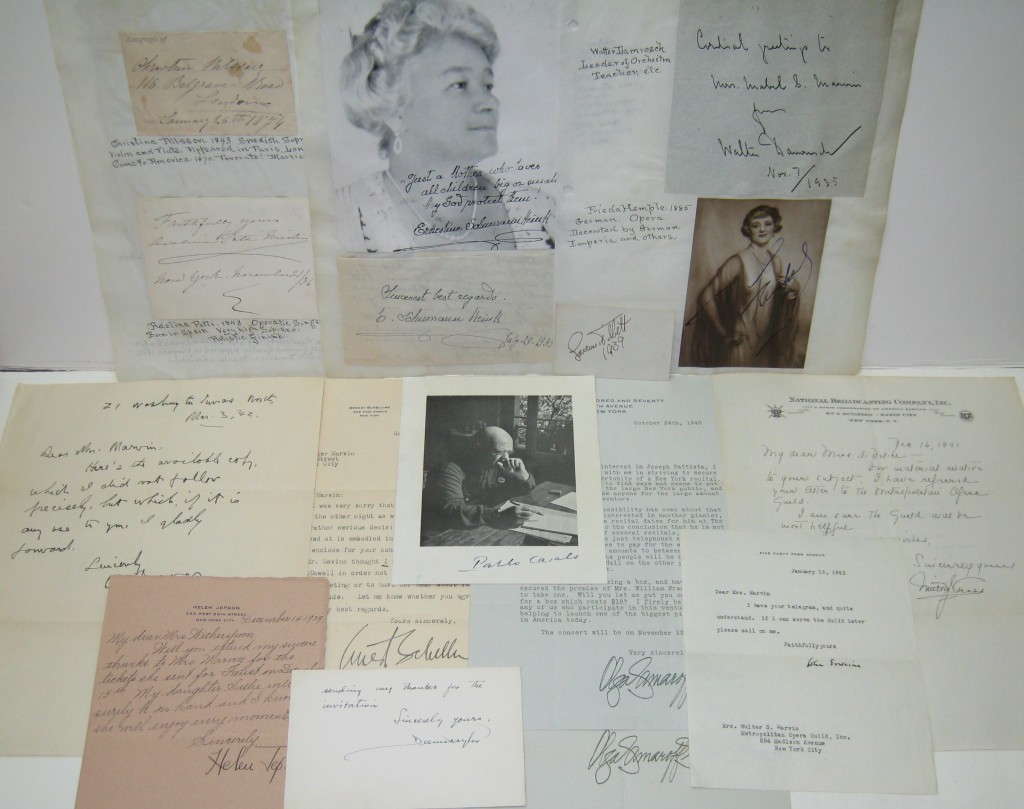 Autograph of
Christine Nilsson
Belgrave Road
London
January 26th 1894
Christine Nilsson 1843 Swedish Sopr
Violin and Flute. Appeared in Paris, Lon
Came to America 1870 "Favorite" Marrie
Faithfully yours
Adelina Patti
New York November
Adelina Patti. 1843 Operatic Sing
Born in Spain Very high Soprano.
Artistic finish
"Just a Mother who loves
all children big or small
My God protect them"
Ernestine Schumann Heink
Sincerest best regards.
E. Schumann Heink
Walter Damrosch
Leader of Orchestra
Teacher, etc
Cordial greetings to
Mrs. Mabel S. Marvin
from
Walter Damrosch
Nov. 7/1935
Frieda Hemple 1885
German Opera
Decorated by German
Imperia and others.
1939
21 Washington Square North
Mar. 3, '42.
Dear Mrs. Marvin,
Here's the available copy,
which I did not follow
precisely, but which, if it is
any use to you, I gladly
forward.
Sincerely
HELEN JEPSON
NEW YORK CITY
December 14 1939
My dear Mrs. Witherspoon,
Will you extend my sincere
thanks to Mrs. Waring for the
tickets she sent for Faust on
15th. My daughter Sallie will
surely be on hand and I know
she will enjoy every moment
Sincerely
Helen Jep
ERNEST SCHELLING
er Marvin
Street
City
Marvin:
I was very sorry that
the other night as w
rather serious decisi
ad it is embodied in
enclose for your con
Mr. Gavins thought I
Dowell in order not
eting or to have
ide. Let me know whether you agr
y best regards,
Yours sincerely,
Ernest Schelling
Pablo Casals
sending my thanks for the
invitation
Sincerely yours,
DRED AND SEVENTY
TH AVENUE
NEW YORK
October 24th, 1940
interest in Joseph Battista, I
with me in striving to secure
rtunity of a New York recital.
the large New York public, and
me anyone for the large amount
venture.
ossibility has come about that
interest in another pianist,
e recital dates for him at The
o the conclusion that it is not
f several recitals,
just telephoned
es to pay for the
amounts to between
he people will be
Hall on the other
ing a box, and hav
secured the promises of Mrs. William Fra
to take one. Will you let us put you d
for a box which costs $18? I firmly be
any of us who participate in this ventu
helping to launch one of the biggest pi
in America today.
The concert will be on November 15
Very sincerel
Olga Samaroff
Olga Samaroff
NATIONAL BROADCASTING COMPANY, INC.
RCA BUILDING · RADIO CITY
NEW YORK, N.Y.
Dec 16, 1941.
My dear Miss
For material relative
to your subject, I have referred
your letter to the Metropolitan Opera
Guild.
I am sure the Guild will be
most helpful
Sincerely yours
January 13, 1942
Dear Mrs. Marvin
I have your telegram, and quite
understand. If I can serve the Guild later
please call on me.
Faithfully yours
John Erskine
Mrs. Walter S. Marvin
Metropolitan Opera Guild, Inc.
654 Madison Avenue
New York City